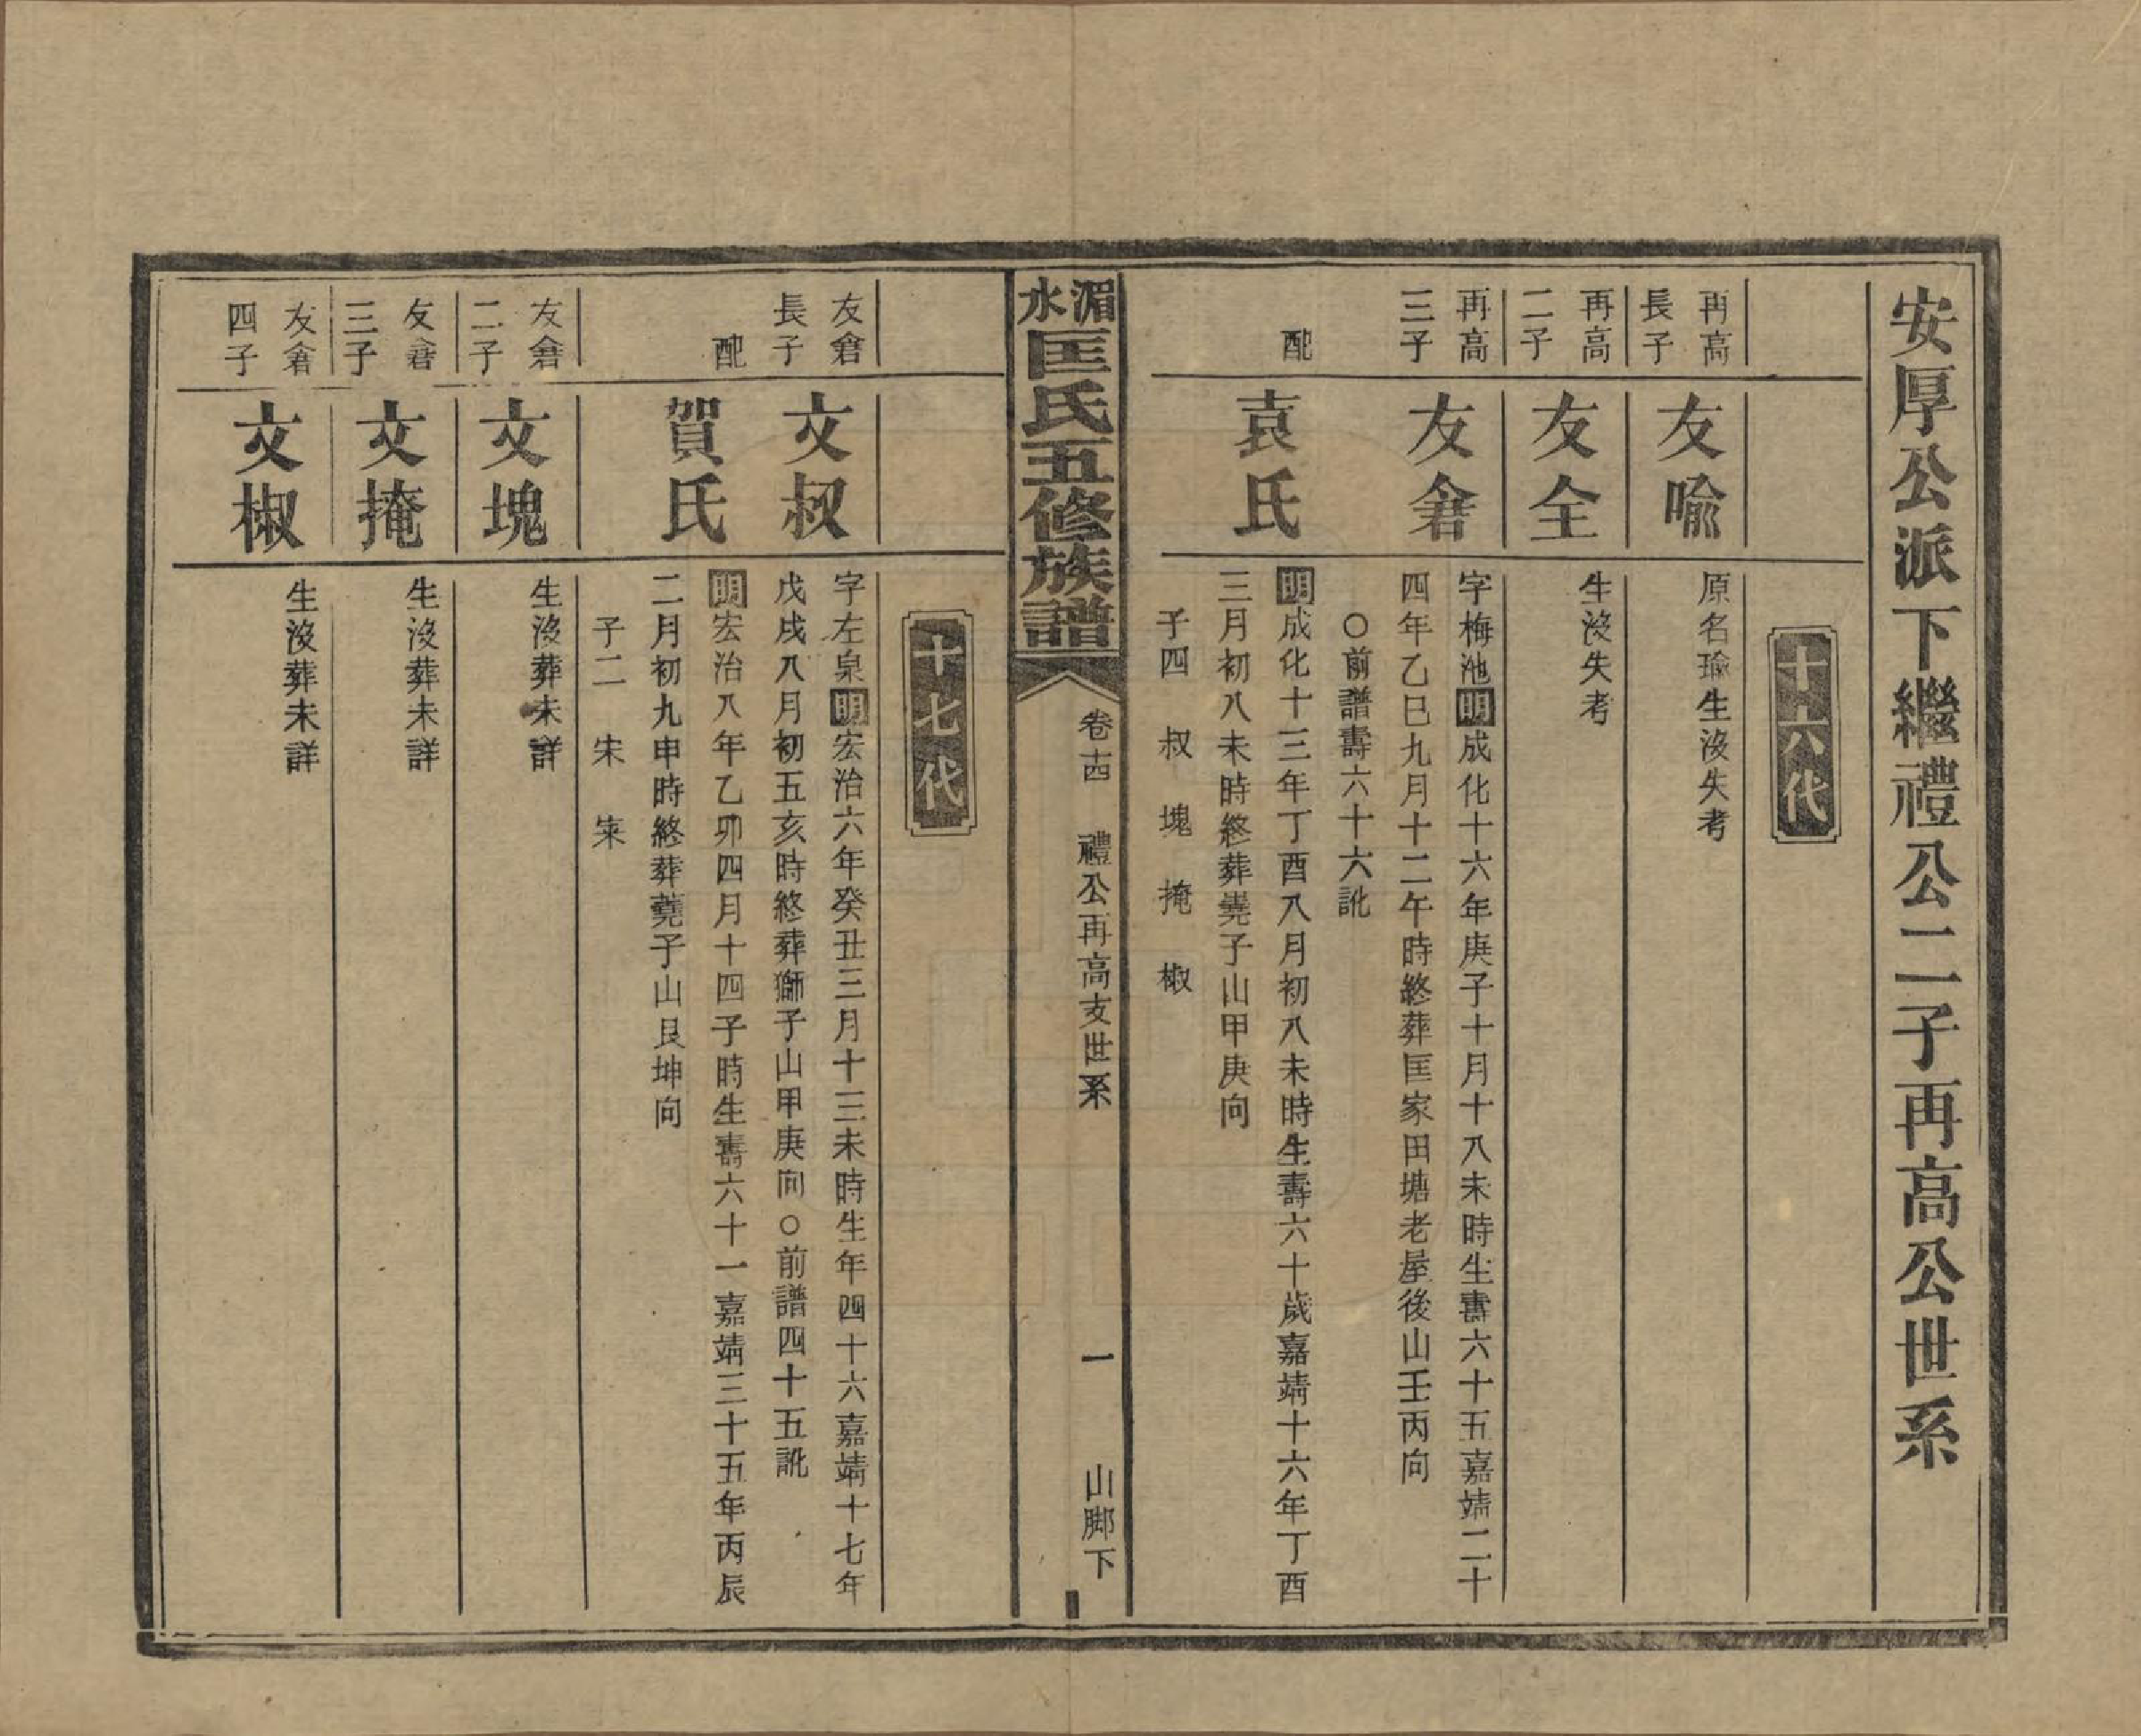 安厚公派下繼禮公二子再高公世系
十六代
再高
長子
友喩
原名瑜生沒失考
再高
二子
友全
生沒失考
再高
三子
友
字梅池明成化十六年庚子十月十八未時生壽六十五嘉靖二十
四年乙巳九月十二午時終葬匡家田塘老屋後山壬丙向
○前譜壽六十六訛
配
袁氏
明成化十三年丁酉八月初八未時生壽六十歲嘉靖十六年丁酉
三月初八未時終葬蕘子山甲庚向
子四 叔 塊 掩 椒
湄水匡氏五修族譜
卷十四 禮公再高支世系 一 山腳下
十七代
友
長子
文叔
字左泉明宏治六年癸丑三月十三未時生年四十六嘉靖十七年
戊戌八月初五亥時終葬獅子山甲庚向○前譜四十五訛
配
賀氏
明宏治八年乙卯四月十四子時生壽六十一嘉靖三十五年丙辰
二月初九申時終葬蕘子山艮坤向
子二 宋 寀
友
二子
文塊
生沒葬未詳
友
三子
文掩
生沒葬未詳
友
四子
文椒
生沒葬未詳